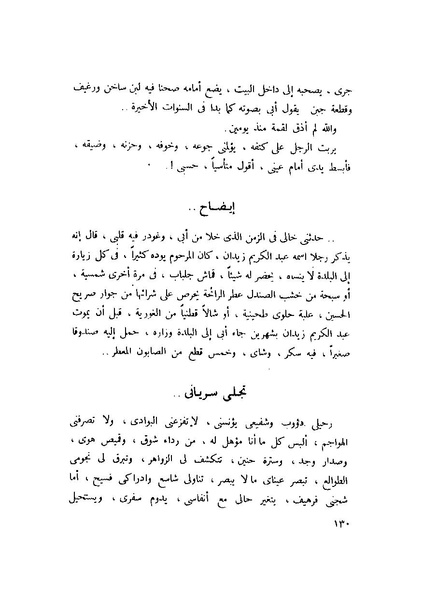 جرى ، يصحبه إلى داخل البيت ، يضع أمامه صحنا فيه لبن ساخن ورغيف
وقطعة جبن يقول أبى بصوته كما بدا فى السنوات الأخيرة ..
والله لم أذق لقمة منذ يومين .
يربت الرجل على كتفه ، يؤلمنى جوعه ، وخوفه ، وحزنه ، وضيقه ،
فأبسط يدى أمام عينى ، أقول متأسياً ، حسبى !.
إيضاح ..
.. حدثنى خالى فى الزمن الذى خلا من أبى ، وغودر فيه قلبى ، قال إنه
يذكر رجلا اسمه عبد الكريم زيدان ، كان المرحوم يوده كثيراً ، فى كل زيارة
إلى البلدة لا ينسه ، يحضر له شيئاً ، قماش جلباب ، فى مرة أخرى شمسية ،
أو سبحة من خشب الصندل عطر الرائحة يحرص على شرائها من جوار ضريح
الحسين ، علبة حلوى طحينية ، أو شالاً قطنياً من الغورية ، قبل أن يموت
عبد الكريم زيدان بشهرين جاء أبى إلى البلدة وزاره ، حمل إليه صندوقا
صغيراً ، فيه سكر ، وشاى ، وخمس قطع من الصابون المعطر ..
تجلى سريانى ..
رحيلى دؤوب وشفيعى يؤنسنى ، لا تفزعنى البوادى ، ولا تصرفنى
الهواجم ، ألبس كل ما أنا مؤهل له ، من رداء شوق ، وقميص هوى ،
وصدار وجد ، وسترة حنين ، تتكشف لى الزواهر ، وتبرق لى نجومى
الطوالع ، تبصر عيناى ما لا يبصر ، تناولى شاسع وادراكى فسيح ، أما
شجنى فرهيف ، يتغير حالى مع أنفاسى ، يدوم سفرى ، ويستحيل
١٣٠